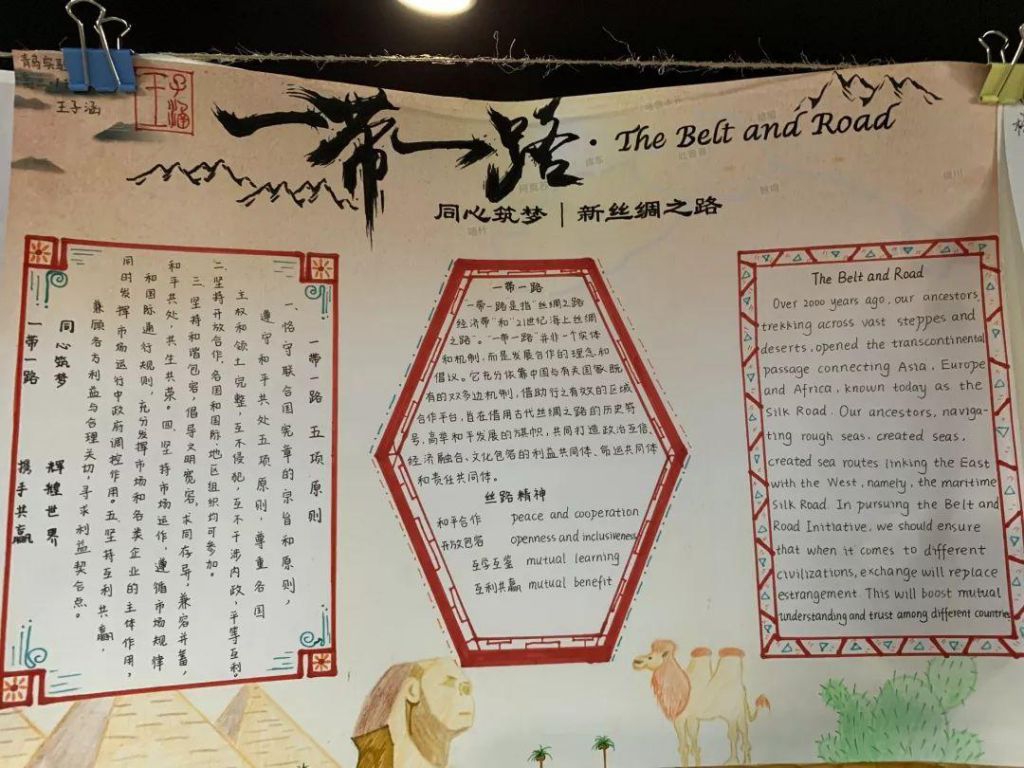 王子涵
王子涵
一带一路·The Belt and Road
同心筑梦｜新丝绸之路
一带一路 五项原则
一、恪守联合国宪章的宗旨和原则，
遵守和平共处五项原则，尊重各国
主权和领土完整，互不侵犯，互不干涉内政，平等互利。
二、坚持开放合作，各国和国际地区组织均可参加。
三、坚持和谐包容，倡导文明宽容，求同存异，兼容并蓄，
和平共处，共生共荣。四、坚持市场运作，遵循市场规律
和国际通行规则，充分发挥市场和各类企业的主体作用，
同时发挥市场运行中政府调控作用。五、坚持互利共赢，
兼顾各方利益与合理关切，寻求利益契合点。
同心筑梦 辉煌世界
一带一路 携手共赢
一带一路
一带一路是指"丝绸之路
经济带"和"21世纪海上丝绸
之路"。"一带一路"并非一个实体
和机制，而是发展合作的理念和
倡议。它充分依靠中国与有关国家既
有的双多边机制，借助行之有效的区域
合作平台，旨在借用古代丝绸之路的历史符
号，高举和平发展的旗帜，共同打造政治互信、
经济融合、文化包容的利益共同体、命运共同体
和责任共同体。
丝路精神
和平合作 peace and cooperation
开放包容 openness and inclusiveness
互学互鉴 mutual learning
互利共赢 mutual benefit
The Belt and Road
Over 2000 years ago, our ancestors,
trekking across vast steppes and
deserts, opened the transcontinental
passage connecting Asia, Europe
and Africa, known today as the
Silk Road. Our ancestors, naviga-
ting rough seas, created seas,
created sea routes linking the East
with the West, namely, the maritime
Silk Road. In pursuing the Belt and
Road Initiative, we should ensure
that when it comes to different
civilizations, exchange will replace
estrangement. This will boost mutual
understanding and trust among different countries